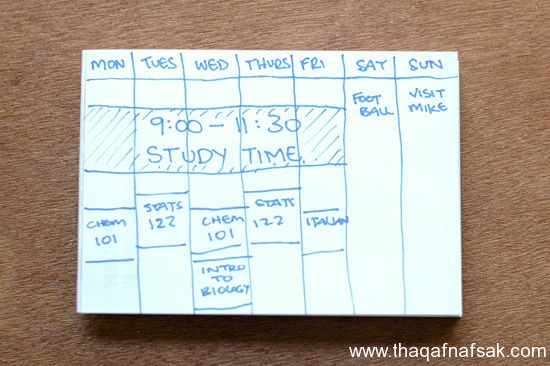 MON TUES WED THURS FRI SAT SUN
FOOT BALL
VISIT MIKE
9:00 - 11:30
STUDY TIME
CHEM
101
STATS
122
CHEM
101
INTRO
TO
BIOLOGY
STATS
122
ITALIAN
www.thaqafnafsak.com